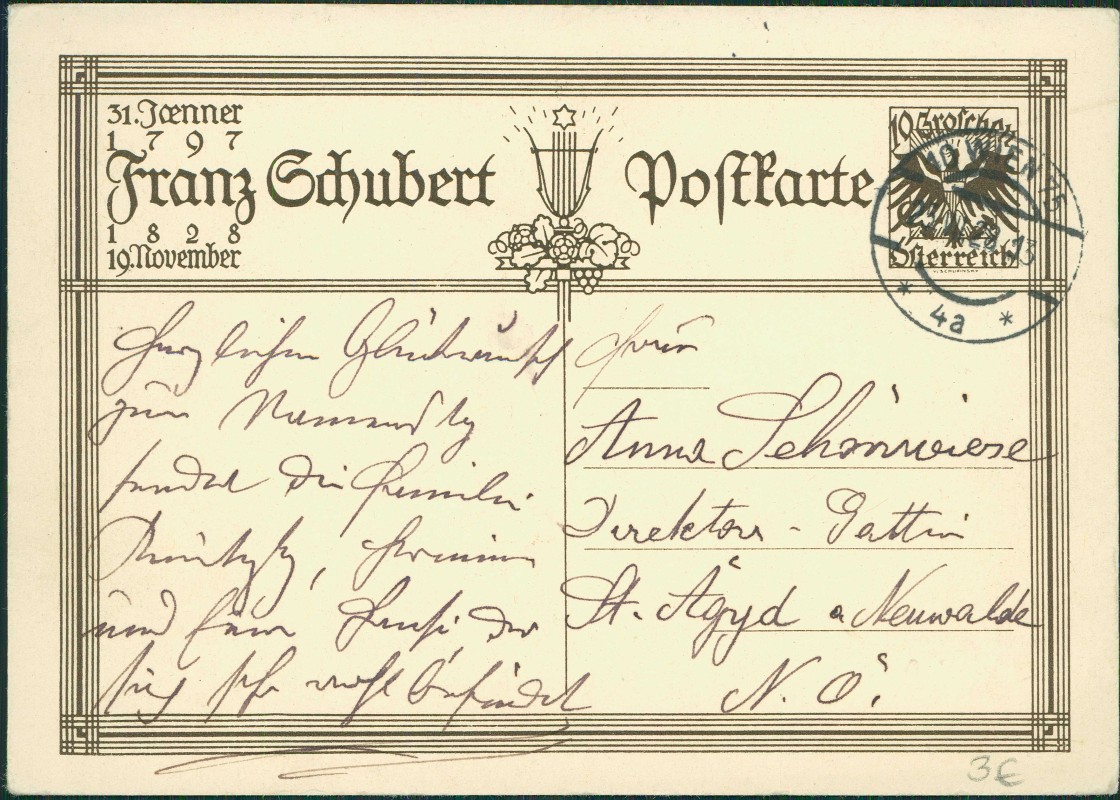 31. Jaenner
1797
Franz Schubert
1828
19. November
Postkarte
10 Groschen
Österreich
WIEN 75
* 4a *
Herzlichen Glückwunsch
zum Namenstg
sendet die Familie
Hermine
und
sich sehr wohl befindet
Frau
Anna Schönwiese
Direktors - Gattin
St. Ägyd a. Neuwalde
N. Ö.
3€